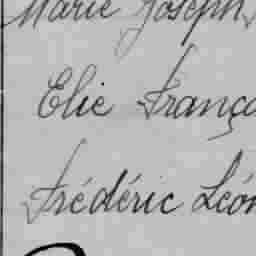 Marie Joseph
Elie Franço
Frédéric Léon